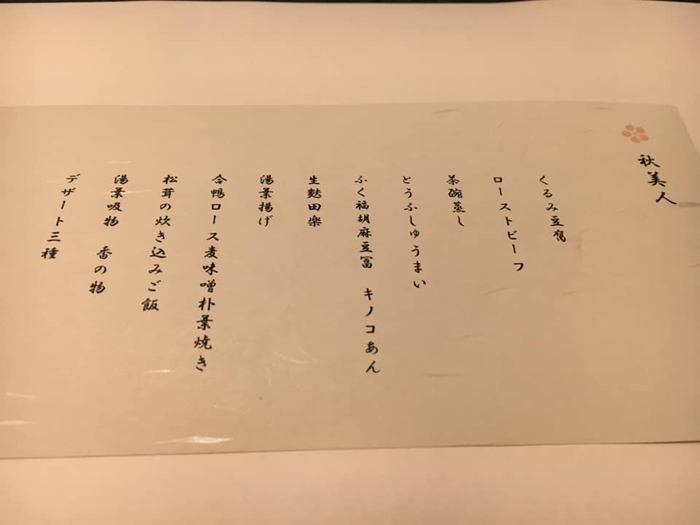 秋美人
くるみ豆腐
ローストビーフ
茶碗蒸し
とうふしゅうまい
ふく福胡麻豆冨 キノコあん
生麩田楽
湯葉揚げ
合鴨ロース麦味噌朴葉焼き
松茸の炊き込みご飯
湯葉吸物 香の物
デザート三種